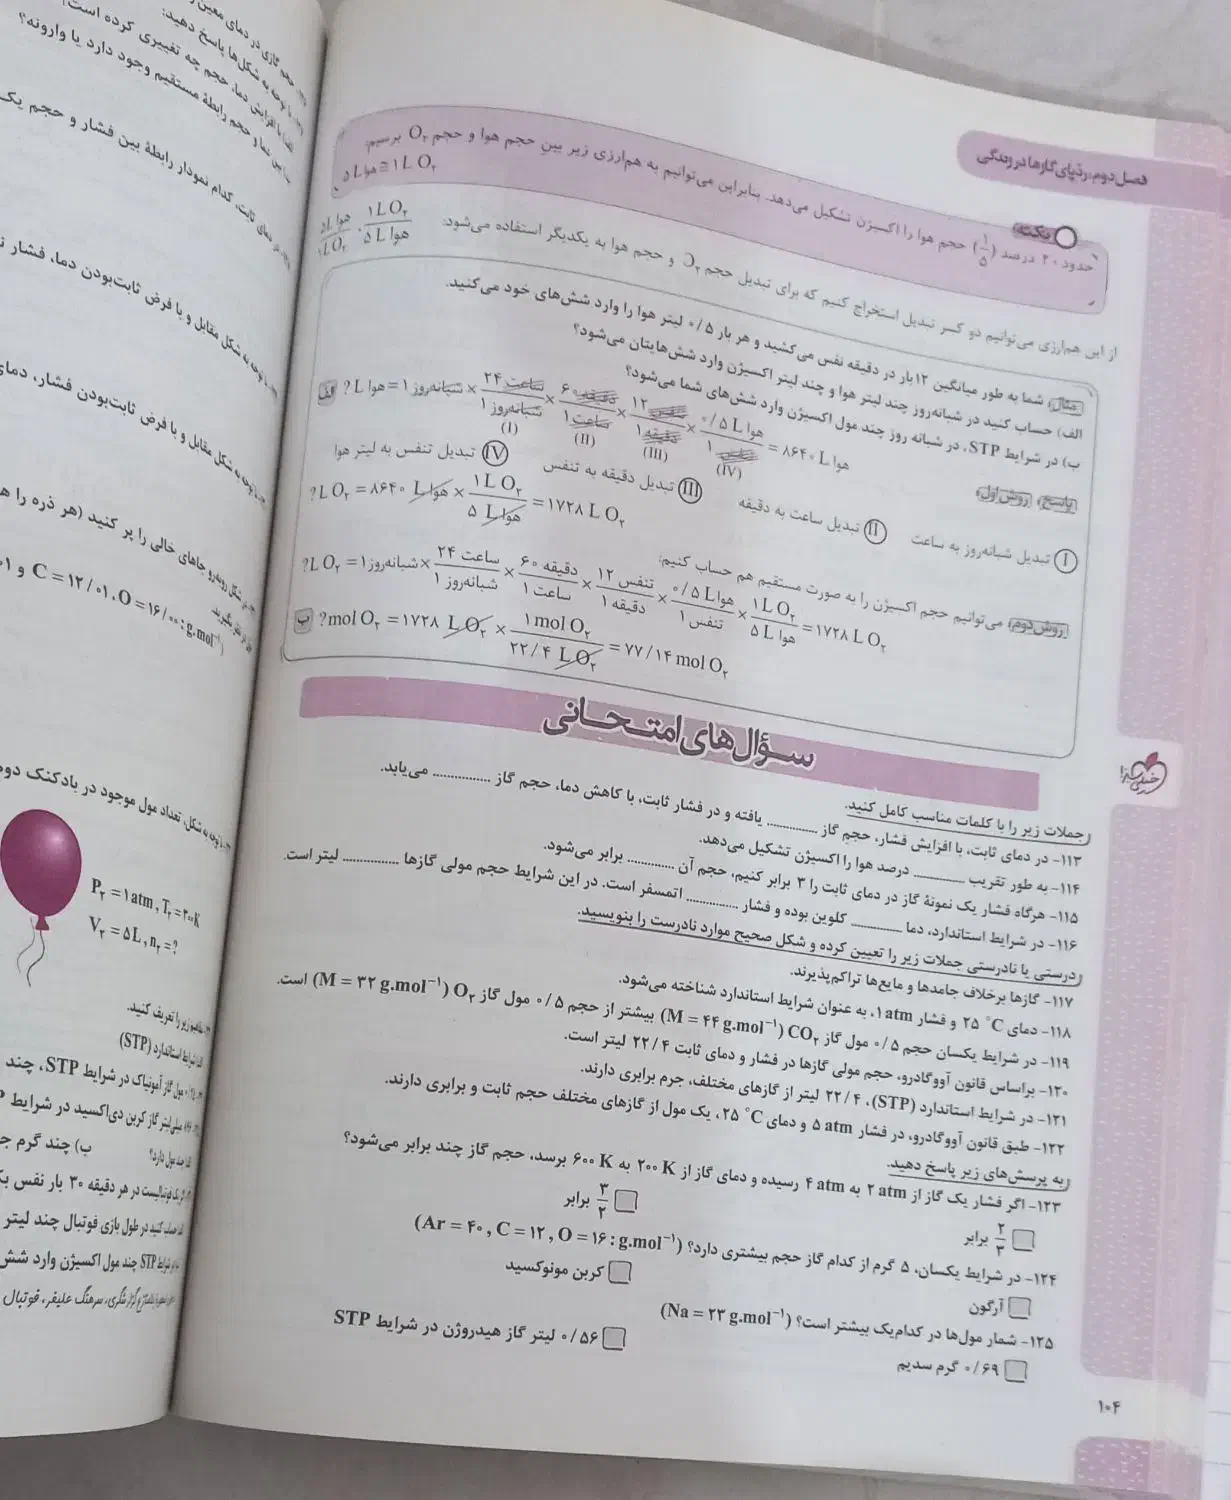 فصل دوم: ردپای گازها در زندگی
نکته
حدود ۲۰ درصد (۱/۵) حجم هوا را اکسیژن تشکیل می‌دهد. بنابراین می‌توانیم به هم‌ارزی زیر بین حجم هوا و حجم O₂ برسیم:
۵ L هوا ≅ ۱ L O₂
از این هم‌ارزی می‌توانیم دو کسر تبدیل استخراج کنیم که برای تبدیل حجم O₂ و حجم هوا به یکدیگر استفاده می‌شود: ۱ L O₂ / ۵ L هوا , ۵ L هوا / ۱ L O₂
مثال: شما به طور میانگین ۱۲ بار در دقیقه نفس می‌کشید و هر بار ۰/۵ لیتر هوا را وارد شش‌های خود می‌کنید.
الف) حساب کنید در شبانه‌روز چند لیتر هوا و چند لیتر اکسیژن وارد شش‌هایتان می‌شود؟
ب) در شرایط STP، در شبانه روز چند مول اکسیژن وارد شش‌های شما می‌شود؟
پاسخ: روش اول:
الف ? L هوا = ۱ شبانه‌روز × ۲۴ ساعت / ۱ شبانه‌روز × ۶۰ دقیقه / ۱ ساعت × ۱۲ نفس / ۱ دقیقه × ۰/۵ L هوا / ۱ نفس = ۸۶۴۰ L هوا
(I) (II) (III) (IV)
I تبدیل شبانه‌روز به ساعت II تبدیل ساعت به دقیقه III تبدیل دقیقه به تنفس IV تبدیل تنفس به لیتر هوا
? L O₂ = ۸۶۴۰ L هوا × ۱ L O₂ / ۵ L هوا = ۱۷۲۸ L O₂
روش دوم: می‌توانیم حجم اکسیژن را به صورت مستقیم هم حساب کنیم:
? L O₂ = ۱ شبانه‌روز × ۲۴ ساعت / ۱ شبانه‌روز × ۶۰ دقیقه / ۱ ساعت × ۱۲ تنفس / ۱ دقیقه × ۰/۵ L هوا / ۱ تنفس × ۱ L O₂ / ۵ L هوا = ۱۷۲۸ L O₂
ب ? mol O₂ = ۱۷۲۸ L O₂ × ۱ mol O₂ / ۲۲/۴ L O₂ = ۷۷/۱۴ mol O₂
سؤال‌های امتحانی
جملات زیر را با کلمات مناسب کامل کنید.
۱۱۳- در دمای ثابت، با افزایش فشار، حجم گاز ............ یافته و در فشار ثابت، با کاهش دما، حجم گاز ............ می‌یابد.
۱۱۴- به طور تقریب ............ درصد هوا را اکسیژن تشکیل می‌دهد.
۱۱۵- هرگاه فشار یک نمونهٔ گاز در دمای ثابت را ۳ برابر کنیم، حجم آن ............ برابر می‌شود.
۱۱۶- در شرایط استاندارد، دما ............ کلوین بوده و فشار ............ اتمسفر است. در این شرایط حجم مولی گازها ............ لیتر است.
درستی یا نادرستی جملات زیر را تعیین کرده و شکل صحیح موارد نادرست را بنویسید.
۱۱۷- گازها برخلاف جامدها و مایع‌ها تراکم‌پذیرند.
۱۱۸- دمای ۲۵ °C و فشار ۱ atm، به عنوان شرایط استاندارد شناخته می‌شود.
۱۱۹- در شرایط یکسان حجم ۰/۵ مول گاز CO₂ (M = ۴۴ g.mol⁻¹) بیشتر از حجم ۰/۵ مول گاز O₂ (M = ۳۲ g.mol⁻¹) است.
۱۲۰- براساس قانون آووگادرو، حجم مولی گازها در فشار و دمای ثابت ۲۲/۴ لیتر است.
۱۲۱- در شرایط استاندارد (STP)، ۲۲/۴ لیتر از گازهای مختلف، جرم برابری دارند.
۱۲۲- طبق قانون آووگادرو، در فشار ۵ atm و دمای ۲۵ °C، یک مول از گازهای مختلف حجم ثابت و برابری دارند.
به پرسش‌های زیر پاسخ دهید.
۱۲۳- اگر فشار یک گاز از ۲ atm به ۴ atm رسیده و دمای گاز از ۲۰۰ K به ۶۰۰ K برسد، حجم گاز چند برابر می‌شود؟
۲/۳ برابر ۳/۲ برابر
۱۲۴- در شرایط یکسان، ۵ گرم از کدام گاز حجم بیشتری دارد؟ (Ar = ۴۰, C = ۱۲, O = ۱۶ : g.mol⁻¹)
آرگون کربن مونوکسید
۱۲۵- شمار مول‌ها در کدام‌یک بیشتر است؟ (Na = ۲۳ g.mol⁻¹)
۰/۶۹ گرم سدیم ۰/۵۶ لیتر گاز هیدروژن در شرایط STP
۱۰۴
خیلی سبز
حجم گازی در دمای معین
با توجه به شکل‌ها پاسخ دهید:
الف) با افزایش دما، حجم چه تغییری کرده است؟
بین دما و حجم رابطهٔ مستقیم وجود دارد یا وارونه؟
در دمای ثابت، کدام نمودار رابطهٔ بین فشار و حجم یک
با توجه به شکل مقابل و با فرض ثابت‌بودن دما، فشار
با توجه به شکل مقابل و با فرض ثابت‌بودن فشار، دمای
در شکل روبه‌رو جاهای خالی را پر کنید (هر ذره را
در نظر بگیرید.
C = ۱۲/۰۱, O = ۱۶/۰۰ : g.mol⁻¹)
با توجه به شکل، تعداد مول موجود در بادکنک دوم
P₂ = ۱ atm, T₂ = ۳۰۰ K
V₂ = ۵ L, n₂ = ?
مفاهیم زیر را تعریف کنید.
شرایط استاندارد (STP)
مول گاز آمونیاک در شرایط STP، چند
میلی‌لیتر گاز کربن دی‌اکسید در شرایط
چند مول دارد؟ ب) چند گرم
یک فوتبالیست در هر دقیقه ۳۰ بار نفس
حساب کنید در طول بازی فوتبال چند لیتر
شرایط STP چند مول اکسیژن وارد شش